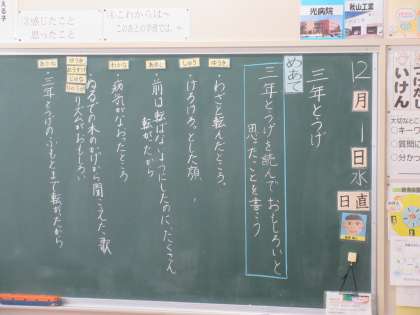 える子
③感じたこと
思ったこと
④これからは～
このあとの学習では、
光病院
秋山工業
12月1日水
日直
三年とうげ
めあて
三年とうげを読んで おもしろいと
思ったことを書こう
ゆうき
・わざと転んだところ。
しゅう
・けろけろっとした顔。
あおし
・前は転ばないようにしたのに、たくさん
転がったから
わかな
・病気がなおったところ
ゆうき
・ぬるでの木のかげから聞こえた歌
リズムがおもしろい
・三年とうげのふもとまで転がったから
いけん
大切なところ
○キーワ
○質問に
○分かっ